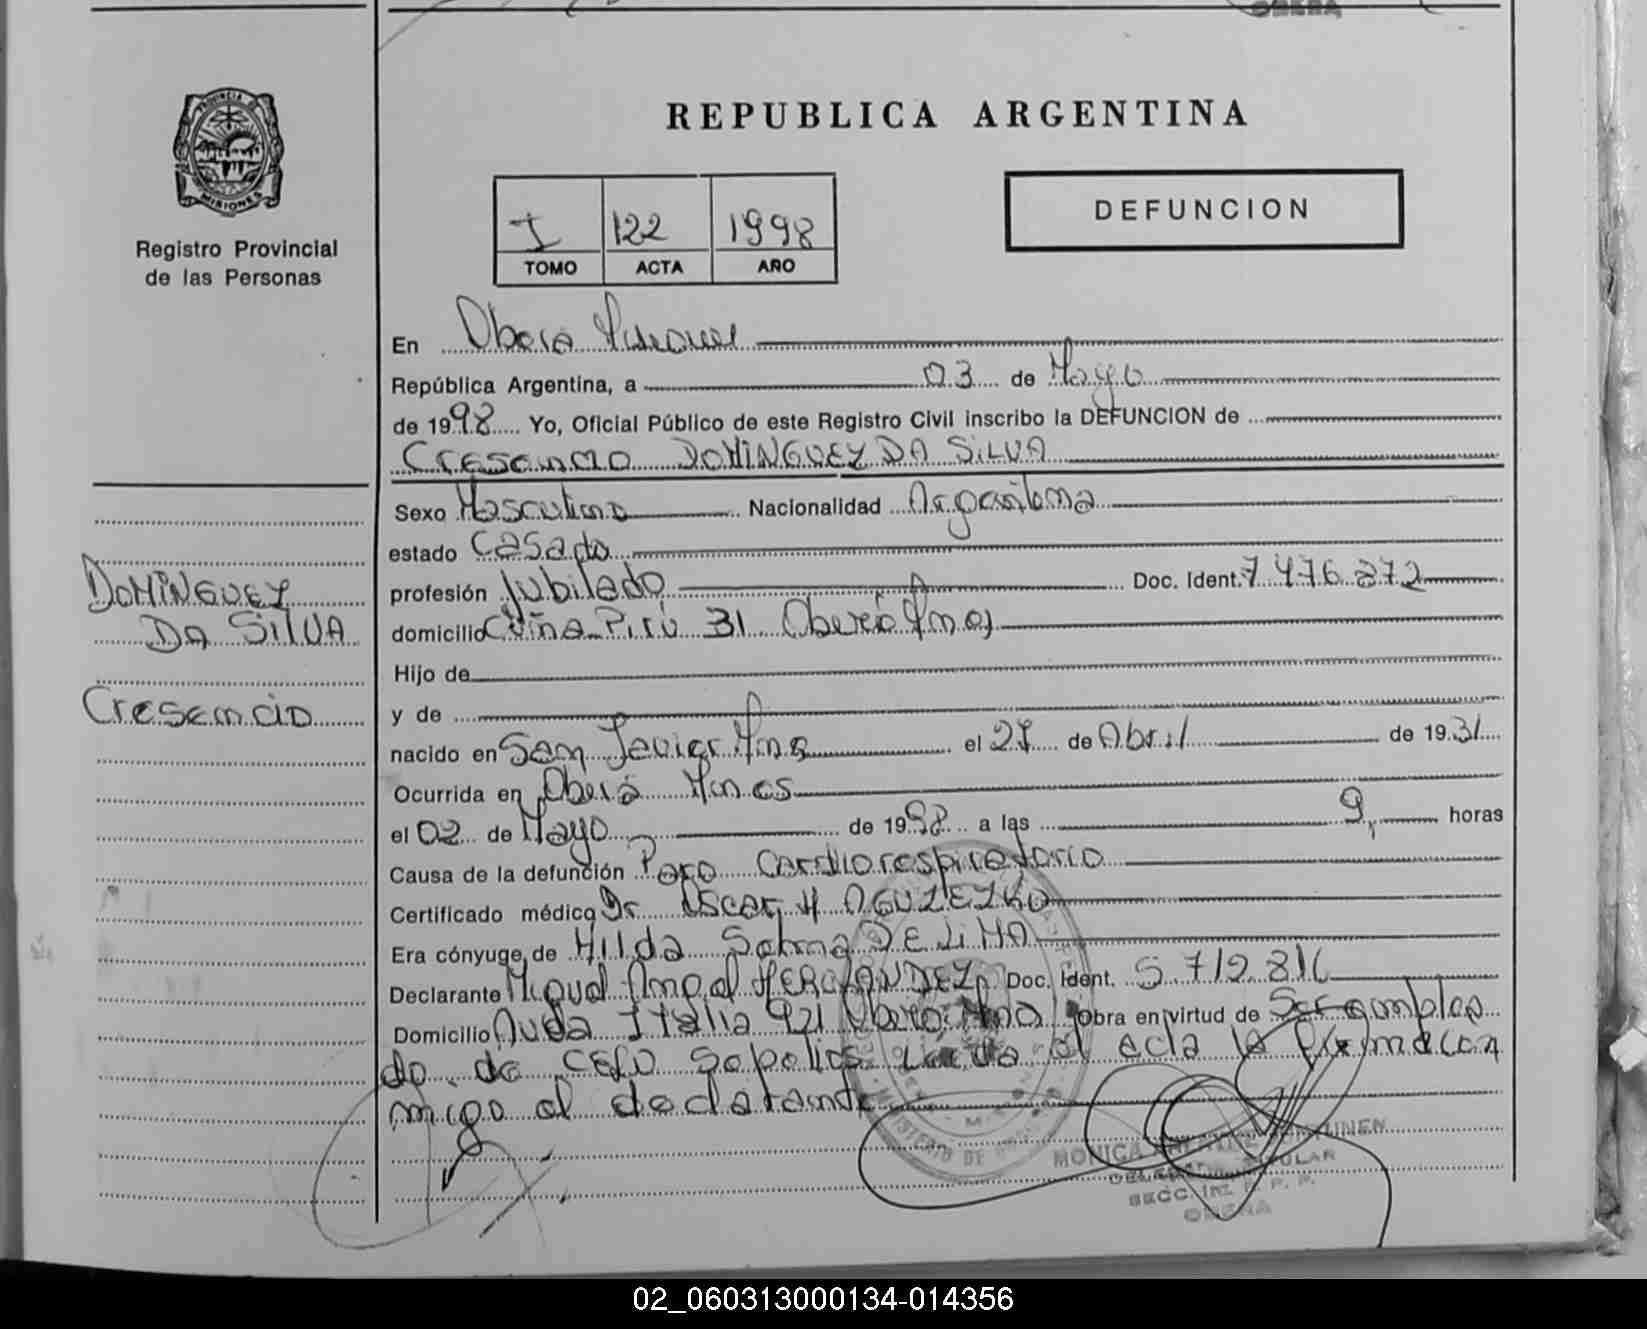 REPUBLICA ARGENTINA
PROVINCIA DE
MISIONES
Registro Provincial
de las Personas
I 122 1998
TOMO ACTA AÑO
DEFUNCION
En Oberá Misiones
República Argentina, a 03 de Mayo
de 1998 Yo, Oficial Público de este Registro Civil inscribo la DEFUNCION de
Cresencio DOMINGUEZ DA SILVA
Sexo Masculino Nacionalidad Argentina
estado Casado
profesión Jubilado Doc. Ident. 7476.872
domicilio Cuña Pirú 31 Oberá Mnes
Hijo de
y de
nacido en San Javier Mnes el 27 de Abril de 1931
Ocurrida en Oberá Mnes
el 02 de Mayo de 1998 a las 9, horas
Causa de la defunción Paro Cardiorespiratorio
Certificado médico Dr Oscar H AGULEZKO
Era cónyuge de Hilda Sabina DE LIMA
Declarante Miguel Angel HERNANDEZ Doc. Ident. 5.712.816
Domicilio Avda Italia 921 Oberá Mnes Obra en virtud de Ser emplea
do de CELO Sepelios Leida el acta la firma con
migo el declarante
DOMINGUEZ
DA SILVA
Cresencio
MINISTERIO DE
MONICA
TITULAR
SECC. R. P. P.
OBERA
02_060313000134-014356